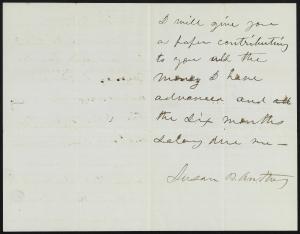 I will give you
a paper contributing
to you all the
money I have
advanced and all
the six months
Salary due me —
Susan B. Anthony